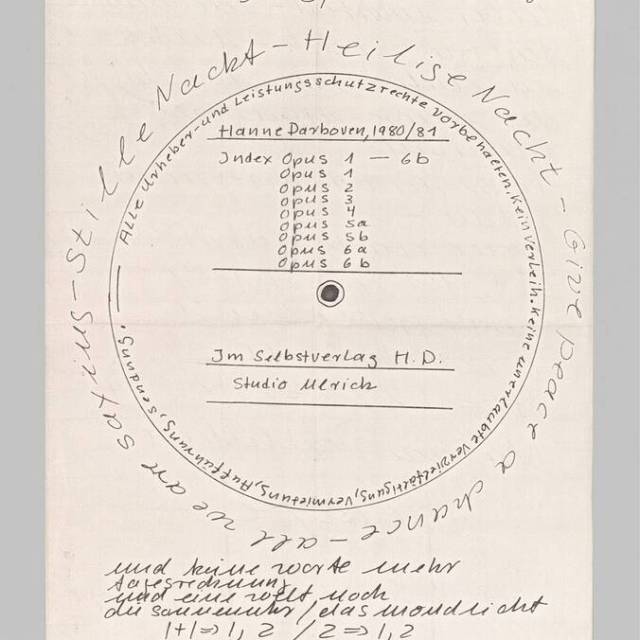 Stille Nacht – Heilige Nacht – Give peace a chance – all we are saying –
Alle Urheber- und Leistungsschutzrechte vorbehalten. Kein Verleih. Keine unerlaubte Vervielfältigung, Vermietung, Aufführung, Sendung. —
Hanne Darboven, 1980/81
Index Opus 1 — 6b
Opus 1
Opus 2
Opus 3
Opus 4
Opus 5a
Opus 5b
Opus 6a
Opus 6b
Im Selbstverlag H.D.
Studio Ulrich
und keine worte mehr
tagesrechnung
und eine rollt noch
die sonnenuhr / das mondlicht
1+1=>1,2 / 2=>1,2